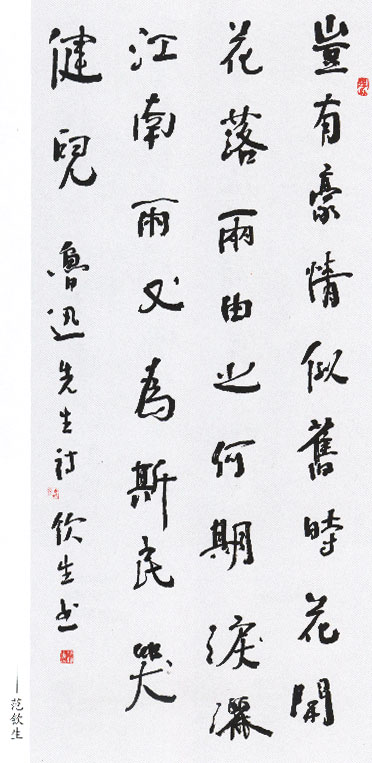 豈有豪情似舊時花開
花落兩由之何期淚灑
江南雨又為斯民哭
健兒 魯迅先生詩 欽生书
范欽生